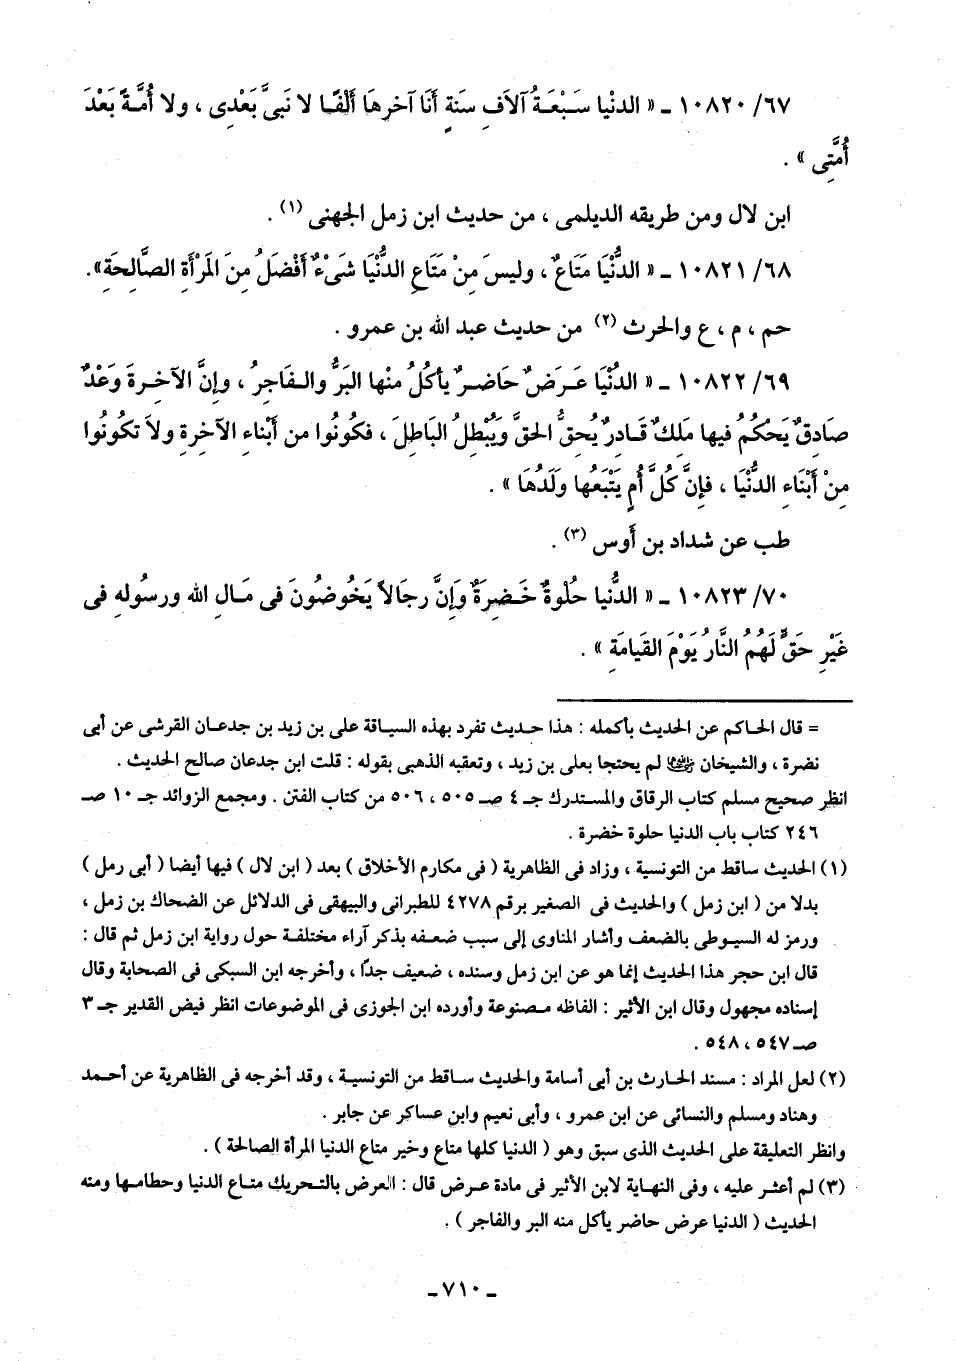 ٦٧/ ١٠٨٢٠ ـ « الدنْيا سَبْعَةُ آلاَفِ سَنةٍ أَنَا آخرِهَا أَلْفًا لا نَبىَّ بَعْدِى ، ولا أُمَّةً بَعْدَ
أُمَّتِى » .
ابن لال ومن طريقه الديلمى ، من حديث ابن زمل الجهنى (١) .
٦٨/ ١٠٨٢١ ـ « الدُّنْيَا مَتَاعٌ ، وليسَ مِنْ مَتَاعِ الدُّنْيَا شَىْءٌ أَفْضَلُ مِنَ المَرْأَةِ الصَّالِحَةِ».
حم ، م ، ع والحرث (٢) من حديث عبد الله بن عمرو .
٦٩/ ١٠٨٢٢ ـ « الدُنْيَا عَرَضٌ حَاضرٌ يأكُلُ منْها البَرُّ والفَاجِرُ ، وإنَّ الآخرةَ وَعْدٌ
صَادِقٌ يَحْكُمُ فيها مَلِكٌ قَادِرٌ يُحِقُّ الحَقَّ وَيُبْطِلُ البَاطِلَ ، فكُونُوا من أَبْناءِ الآخرةِ ولاَ تكُونُوا
مِنْ أَبْنَاءِ الدُّنْيَا ، فإنَّ كُلَّ أُمٍ يَتْبَعُها ولَدُهَا » .
طب عن شداد بن أوس (٣) .
٧٠/ ١٠٨٢٣ ـ « الدُّنيا حلْوةٌ خَضِرَةٌ وَإِنَّ رجَالاً يَخُوضُونَ فى مَالِ الله ورسُولهِ فى
غَيْرِ حَقٍّ لَهُمُ النَّارُ يَوْمَ القَيامَةِ » .
= قال الحاكم عن الحديث بأكمله : هذا حديث تفرد بهذه السياقة على بن زيد بن جدعان القرشى عن أبى
نضرة ، والشيخان لم يحتجا بعلى بن زيد ، وتعقبه الذهبى بقوله : قلت ابن جدعان صالح الحديث .
انظر صحيح مسلم كتاب الرقاق والمستدرك جـ ٤ صـ ٥٠٥ ، ٥٠٦ من كتاب الفتن . ومجمع الزوائد جـ ١٠ صـ
٢٤٦ كتاب باب الدنيا حلوة خضرة .
(١) الحديث ساقط من التونسية ، وزاد فى الظاهرية ( فى مكارم الأخلاق ) بعد ( ابن لال ) فيها أيضا ( أبى رمل )
بدلا من ( ابن زمل ) والحديث فى الصغير برقم ٤٢٧٨ للطبرانى والبيهقى فى الدلائل عن الضحاك بن زمل ،
ورمز له السيوطى بالضعف وأشار المناوى إلى سبب ضعفه بذكر آراء مختلفة حول رواية ابن زمل ثم قال :
قال ابن حجر هذا الحديث إنما هو عن ابن زمل وسنده ، ضعيف جدًا ، وأخرجه ابن السبكى فى الصحابة وقال
إسناده مجهول وقال ابن الأثير : الفاظه مصنوعة وأورده ابن الجوزى فى الموضوعات انظر فيض القدير جـ ٣
صـ ٥٤٧ ، ٥٤٨ .
(٢) لعل المراد : مسند الحارث بن أبى أسامة والحديث ساقط من التونسية ، وقد أخرجه فى الظاهرية عن أحمد
وهناد ومسلم والنسائى عن ابن عمرو ، وأبى نعيم وابن عساكر عن جابر .
وانظر التعليقة على الحديث الذى سبق وهو ( الدنيا كلها متاع وخير متاع الدنيا المرأة الصالحة ) .
(٣) لم أعثر عليه ، وفى النهاية لابن الأثير فى مادة عرض قال : العرض بالتحريك متاع الدنيا وحطامها ومنه
الحديث ( الدنيا عرض حاضر يأكل منه البر والفاجر ) .
ـ ٧١٠ ـ